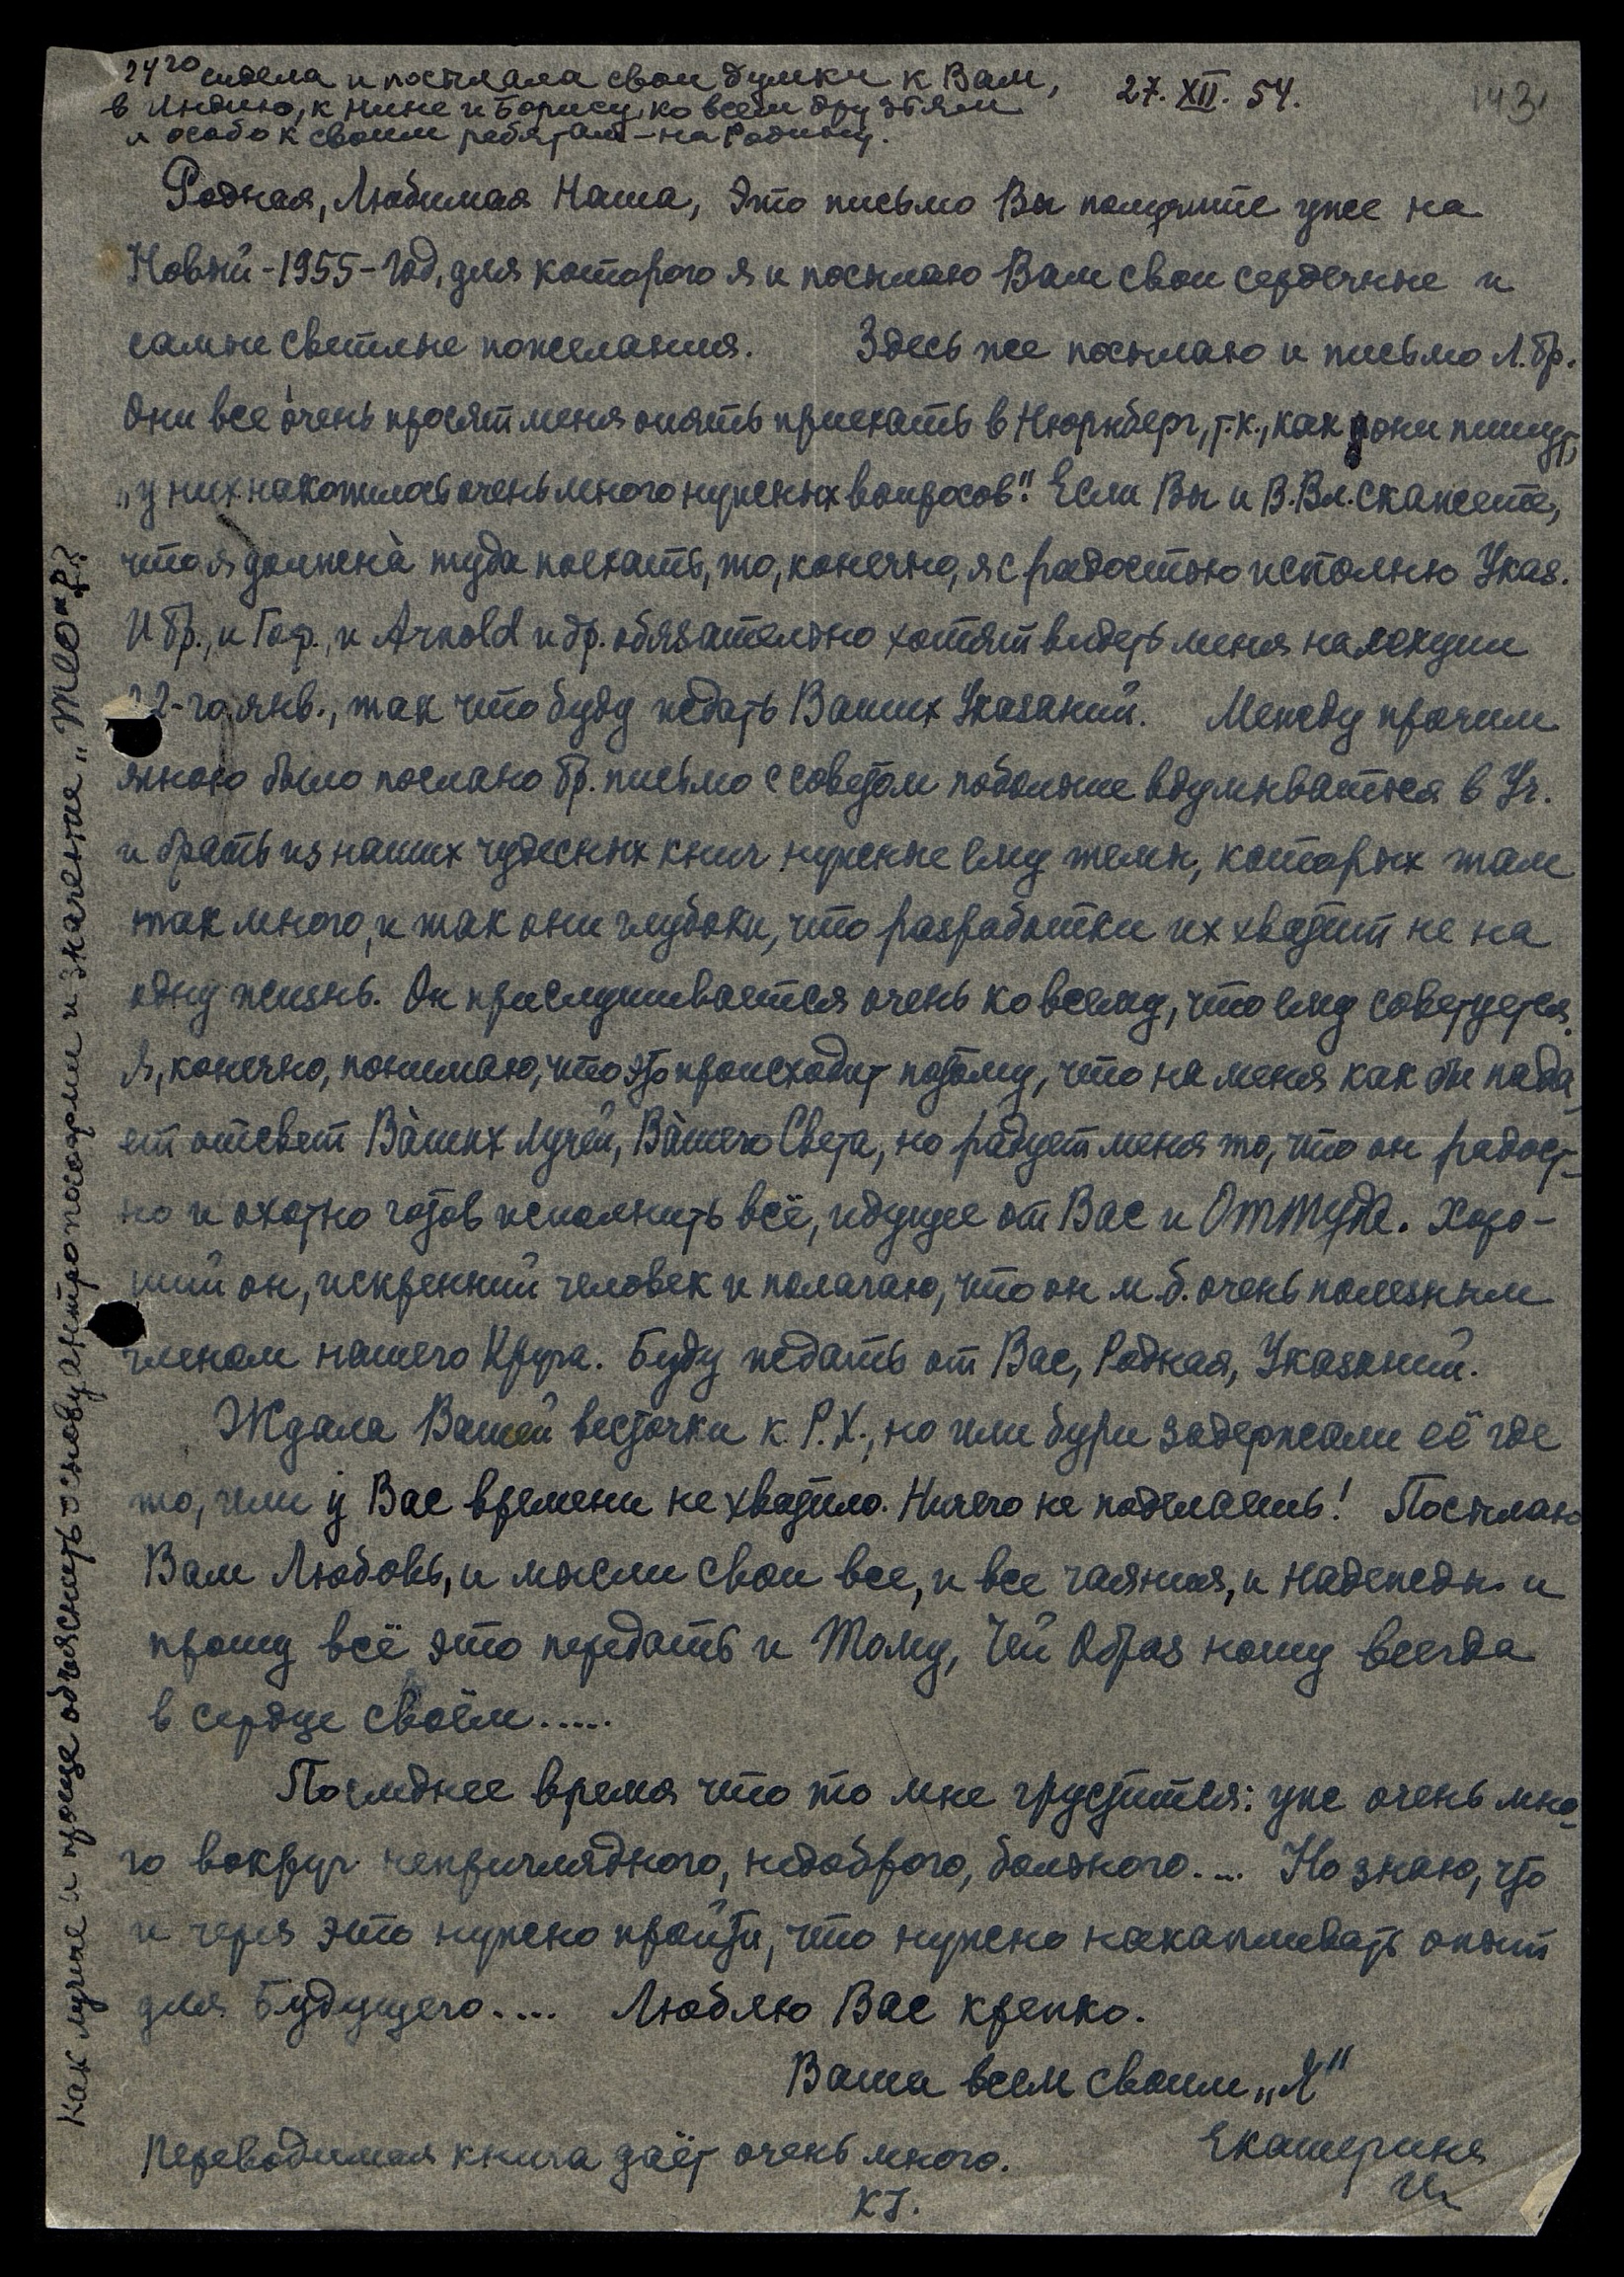 24го сидела и посылала свои думки к Вам,
в Индию, к Нине и Борису, ко всем друзьям
и особо к своим ребятам – на Родину.
27. XII. 54.
Родная, Любимая Наша, Это письмо Вы получите уже на
Новый-1955-год, для которого я и посылаю Вам свои сердечные и
самые светлые пожелания. Здесь же посылаю и письмо Л. Бр.
Они все очень просят меня опять приехать в Нюрнберг, т.к., как они пишут,
„у них накопилось очень много нужных вопросов". Если Вы и В.Вл. скажете,
что я должна̀ туда поехать, то, конечно, я с радостью исполню Указ.
И Бр., и Гоф., и Arnold и др. обязательно хотят видеть меня на лекции
22-го янв., так что буду ждать Ваших Указаний. Между прочим
мною было послано Бр. письмо с советом побольше вдумываться в Уч.
и брать из наших чудесных книг нужные ему темы, которых там
так много, и так они глубоки, что разработки их хватит не на
одну жизнь. Он прислушивается очень ко всему, что ему советуется.
Я, конечно, понимаю, что это происходит потому, что на меня как бы пада
ет отсвет Ва̀ших лучей, Ва̀шего Света, но радует меня то, что он радост-
но и охотно готов исполнить всё, идущее от Вас и Оттуда. Хоро-
ший он, искренний человек и полагаю, что он м.б. очень полезным
членом нашего Круга. Буду ждать от Вас, Родная, Указаний.
Ждала Вашей весточки к Р.Х., но или бури задержали её где
то, или у Вас времени не хватило. Ничего не поделаешь! Посылаю
Вам Любовь, и мысли свои все, и все чаяния, и надежды и
прошу всё это передать и Тому, Чей Образ ношу всегда
в сердце своём.....
Последнее время что то мне грустится: уже очень мно-
го вокруг неприглядного, недоброго, больного.... Но знаю, что
и через это нужно пройти, что нужно накапливать опыт
для Будущего.... Люблю Вас крепко.
Ваша всем своим „Я"
Екатерина
И
Переводимая книга даёт очень много.
Как лучше и проще объяснить основу антропософии и значение „Тео"??